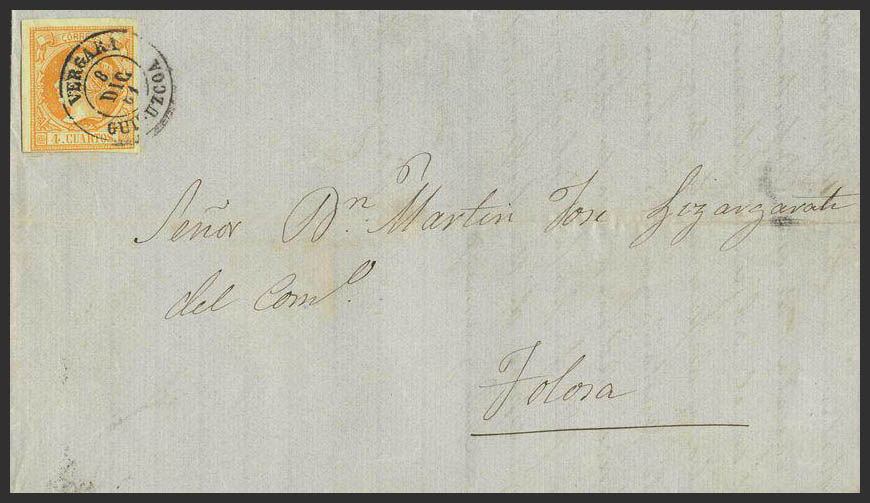 CORR
VERGARA
8
DIC
61
GUIPUZCOA
4 CUARTOS
Señor Dn. Martin Jose Lizarzarate
del Como.
Tolosa